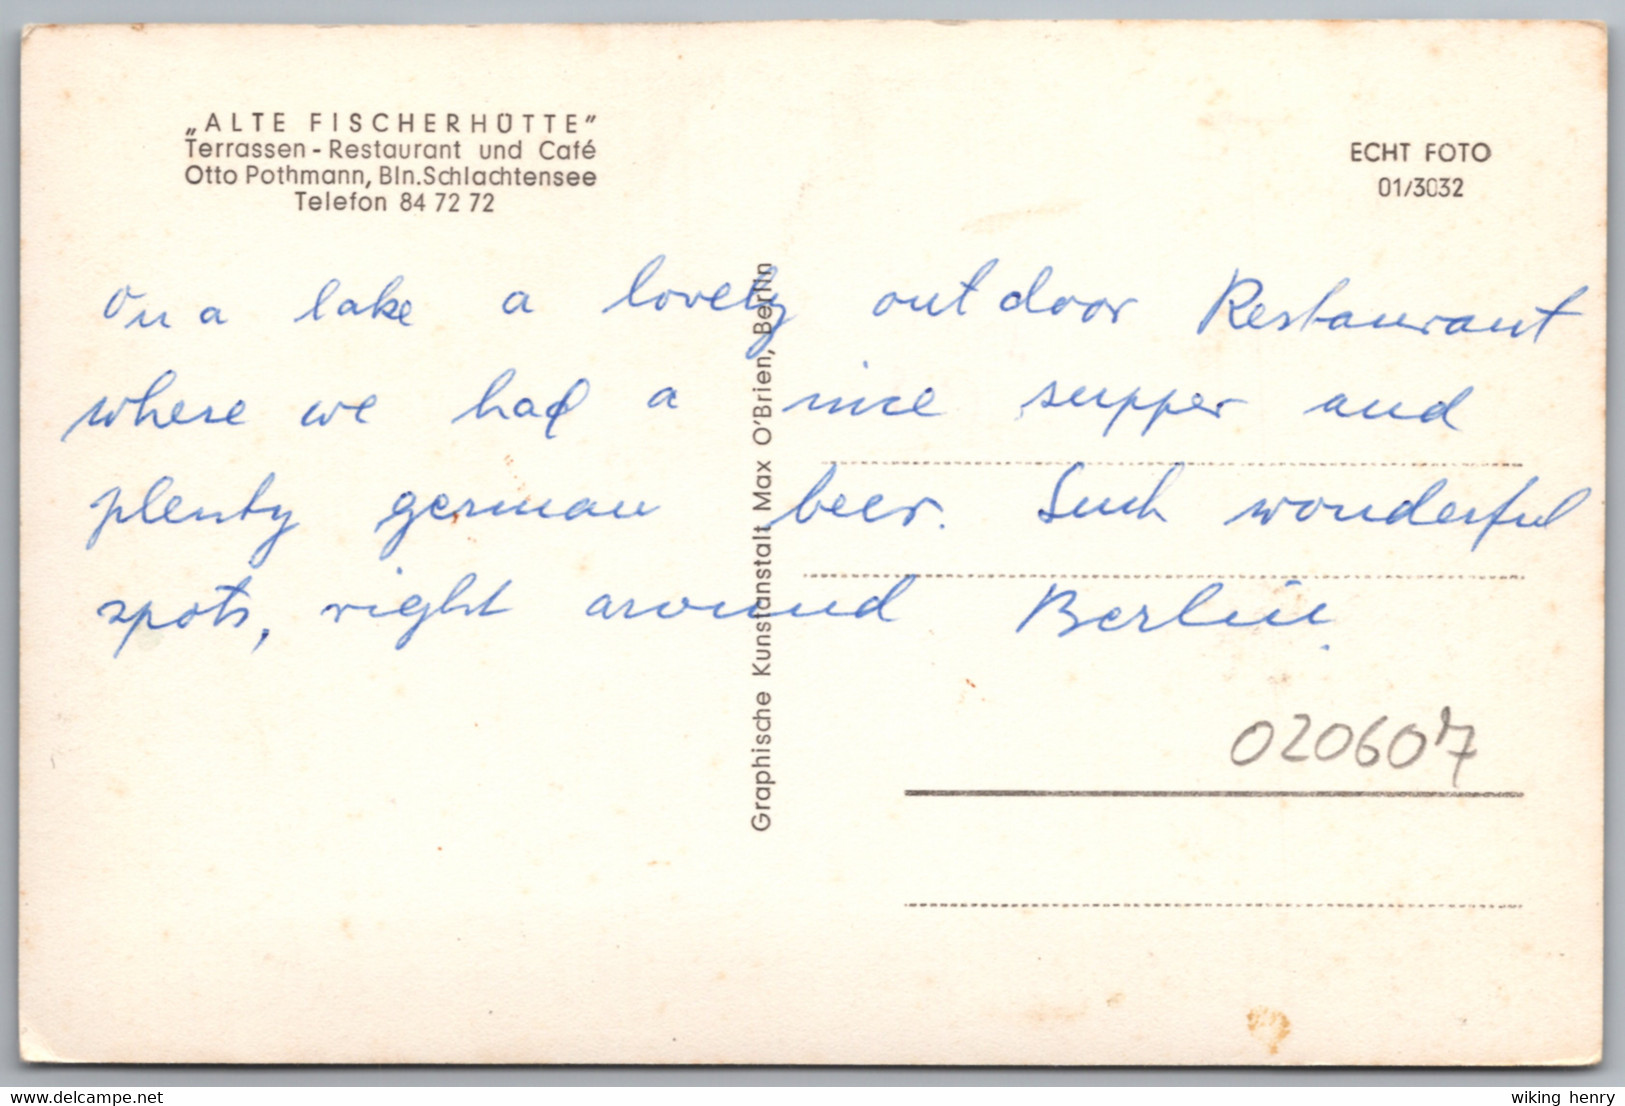 „ALTE FISCHERHÜTTE"
Terrassen-Restaurant und Café
Otto Pothmann, Bln.Schlachtensee
Telefon 84 72 72
ECHT FOTO
01/3032
On a lake a lovely outdoor Restaurant
where we had a nice supper and
plenty german beer. Such wonderful
spots, right around Berlin.
Graphische Kunstanstalt Max O'Brien, Berlin
020607
delcampe.net
wiking henry